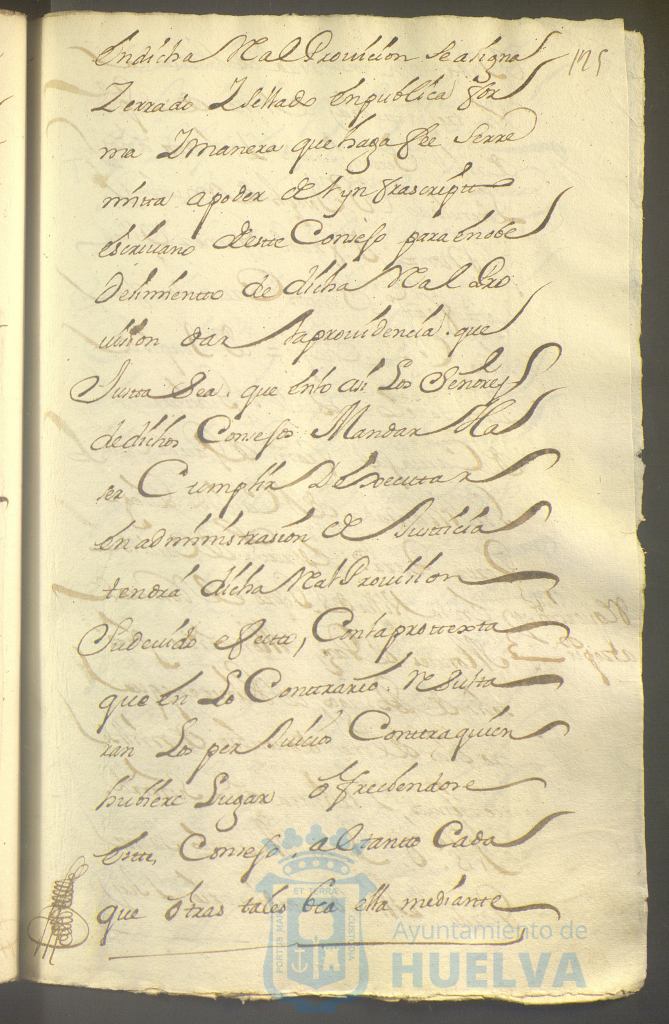 En dicha Real Provicion Se a signa 125
Zerrado I Sellado En publica for
ma I manera que haga fee Serre
mita a poder del ynfrascripto
escrivano deste Consejo para En obe
desimiento de dicha Real Pro
vision dar La providencia que
Justta Sea. que En lo asi Los Señores
de dicho Consejo Mandar Ha
ser Cumplir I Executar
En administrasion de Justicia
tendrá dicha Real Provision
Su devido efectto, Con la prottexta
que En Lo Contrario. Resulta
ran Los per Juicios Contra quien
hubiere Lugar ofreciendose
Este, Consejo, al tanto Cada
que otras tales Vea ella mediante
Ayuntamiento de
HUELVA